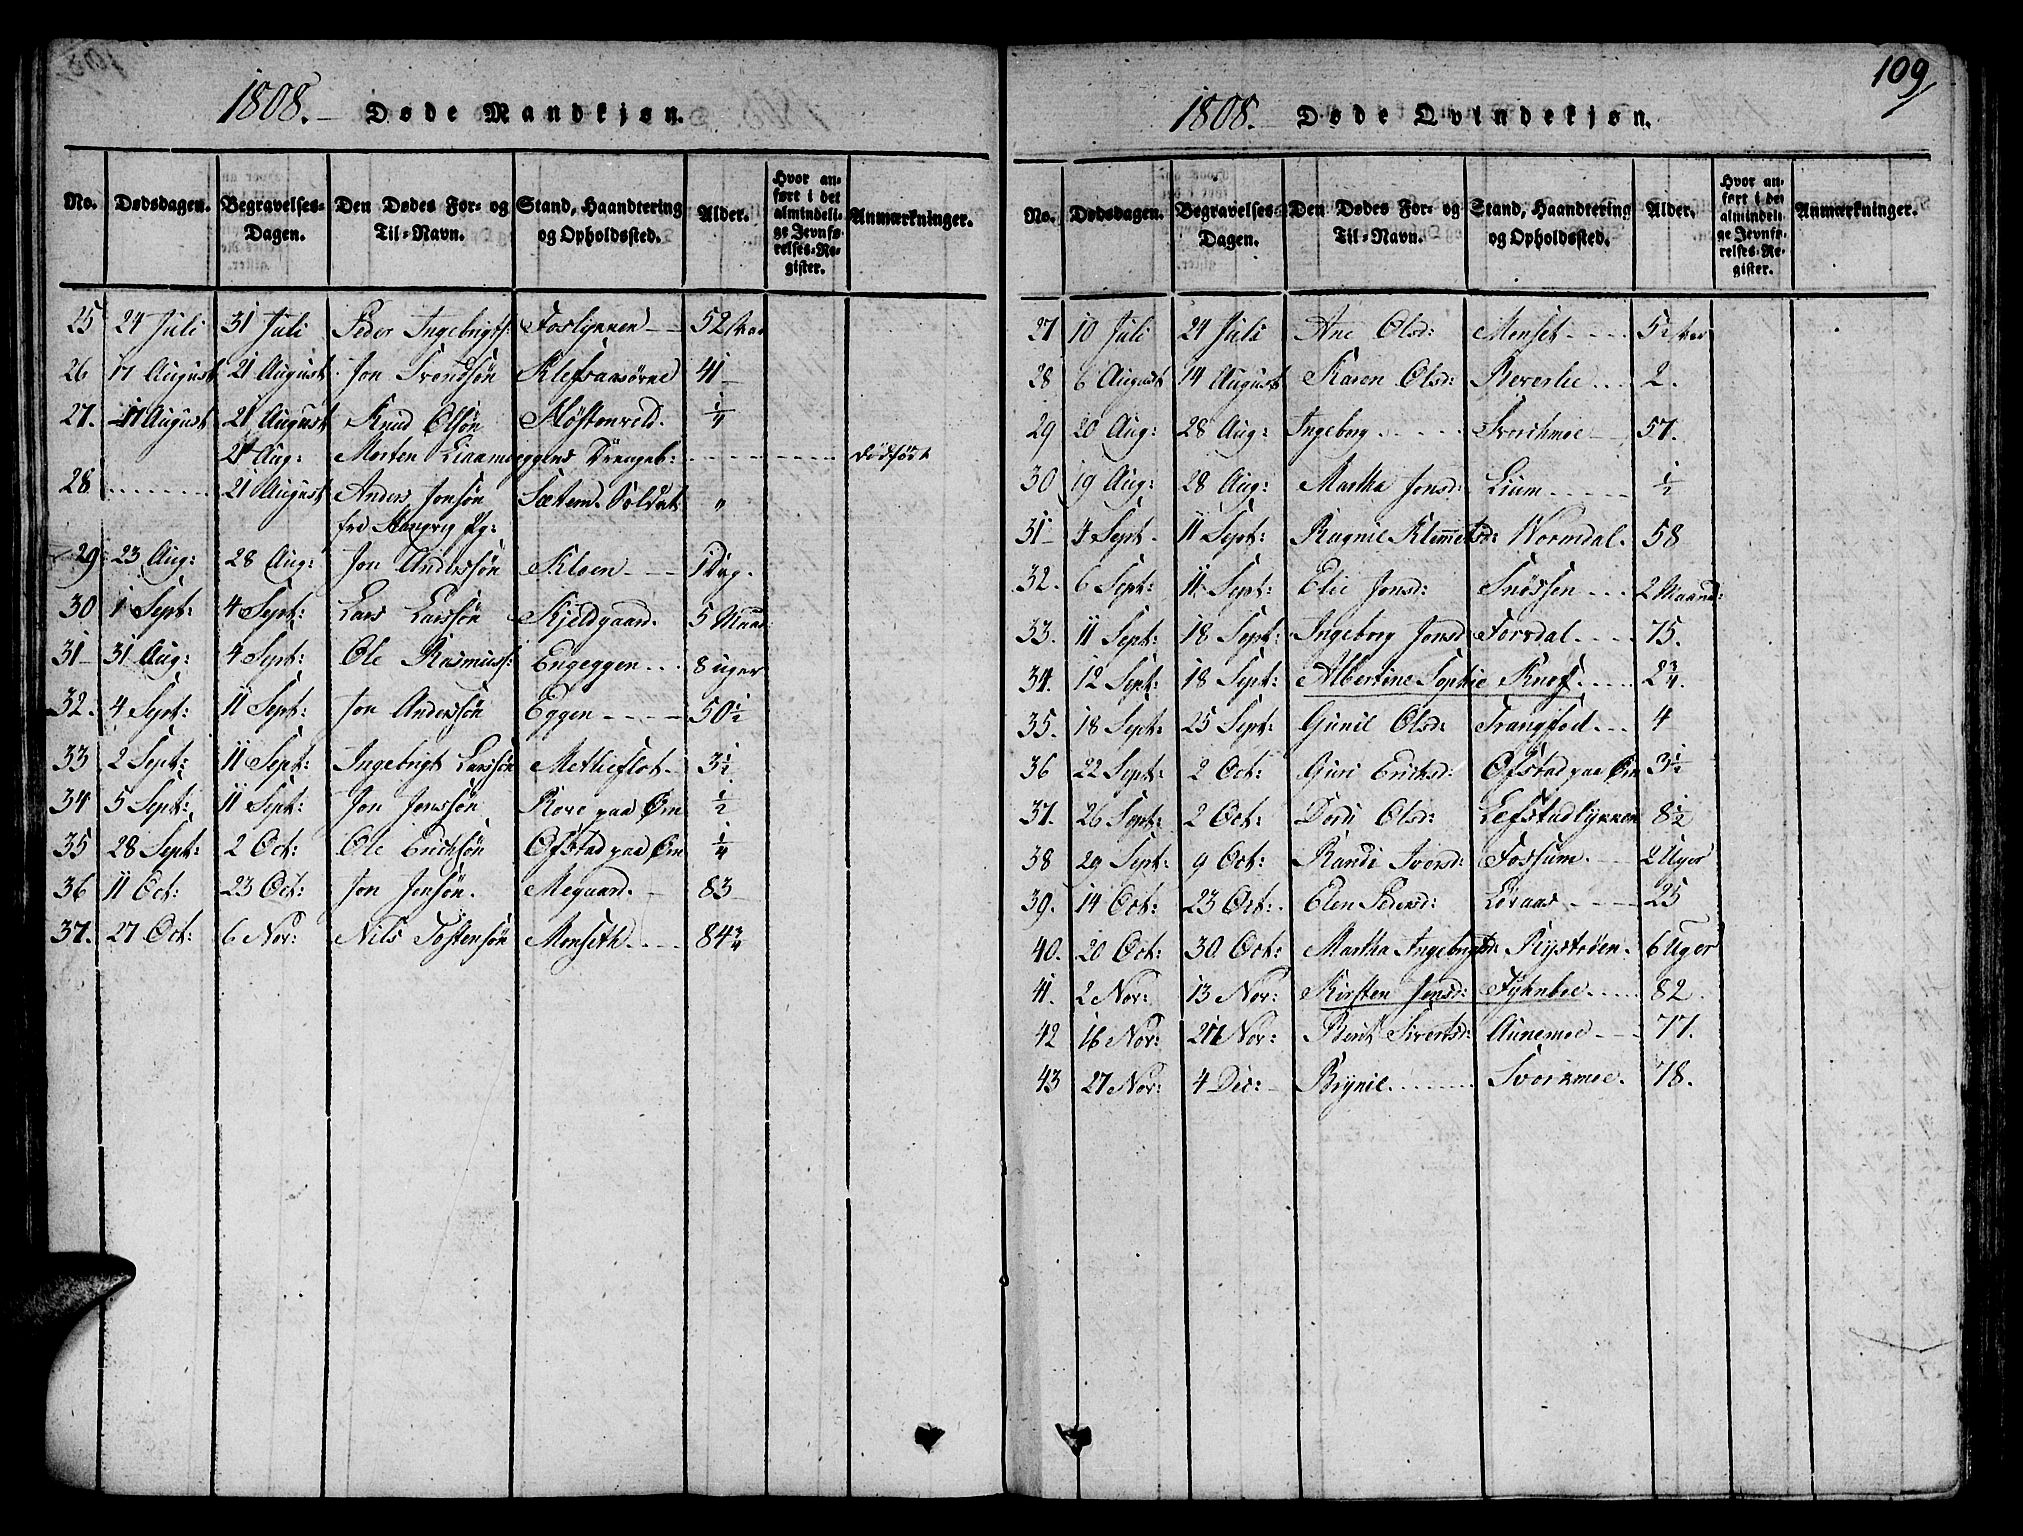 1808. Døde Mandkjøn.
No. Dødsdagen. Begravelses-Dagen. Den Dødes For- og Til-Navn. Stand, Haandtering og Opholdssted. Alder. Hvor anført i det almindelige Jevnførelses-Register. Anmærkninger.
25 24 Juli 31 Juli Peder Ingebrigts: Foslykken 52
26 17 August 21 August Jon Svendsøn 41
27. 17 August 21 August Knud Olsøn ¼
21 Aug: Morten Drengeb: dødfødt
28 21 August Anders Jonsøn Sætem. Soldat "
fra
29 23 Aug: 28 Aug: Jon Anderssøn Kloen 1 Dag.
30 1 Sept: 4 Sept: Lars Larssøn Kjeldgaard. 5 Maan
31 31 Aug: 4 Sept: Ole Rasmuss: Engeggen 8 uger
32. 4 Sept: 11 Sept: Jon Anderssøn Eggen 50½
33 2 Sept: 11 Sept: Ingebrigt Larssøn Metlieflot 3½
34 5 Sept: 11 Sept: Jon Jonssøn Kore paa Øm ½
35 28 Sept: 2 Oct: Ole Erichsøn Ofstad paa Øm ¼
36 11 Oct: 23 Oct: Jon Jonsøn. Megaard. 83
37. 27 Oct: 6 Nov: Nils Tostensøn Monseth 84¾
109
1808. Døde Qvindekjøn.
No. Dødsdagen. Begravelses-Dagen. Den Dødes For- og Til-Navn. Stand, Haandtering og Opholdssted. Alder. Hvor anført i det almindelige Jevnførelses-Register. Anmærkninger.
27 10 Juli 24 Juli Ane Olsd: Monset
28 6 August 14 August Karen Olsd: Reverslie 2.
29 20 Aug: 28 Aug: Ingeborg Svorchmoe 57.
30 19 Aug: 28 Aug: Martha Jonsd: Lium ½
31 4 Sept. 11 Sept: Ragnil Klemmetsd: Wormdal. 58
32. 6 Sept: 11 Sept: Elie Jonsd: Snøssen 2 Maand:
33. 11 Sept: 18 Sept: Ingeborg Jonsd Forrdal. 75.
34. 12 Sept: 18 Sept: Albertine Sophie Knof. 2¾.
35. 18 Sept: 25 Sept: Gunil Olsd: Trangfod. 4
36 22 Sept: 2 Oct: Guri Erichsd: Ofstad paa Øm 3½
37. 26 Sept: 2 Oct: Dordi Olsd: Lefstadlykken 8½
38 29 Sept: 9 Oct: Randi Iversd: Fossum. 2 Uger
39. 14 Oct: 23 Oct: Elen Pedersd: Løraas 25
40. 20 Oct: 30 Oct: Martha Ingebrigtsd: Rystrøen. 6 Uger
41. 2 Nov: 13 Nov: Kirsten Jonsd: Fyhnboe 82.
42 16 Nov: Nov: Berit Sivertsd: Aunemoe 77.
43 27 Nov: 4 Dec: Brynil Svorkmoe. 78.